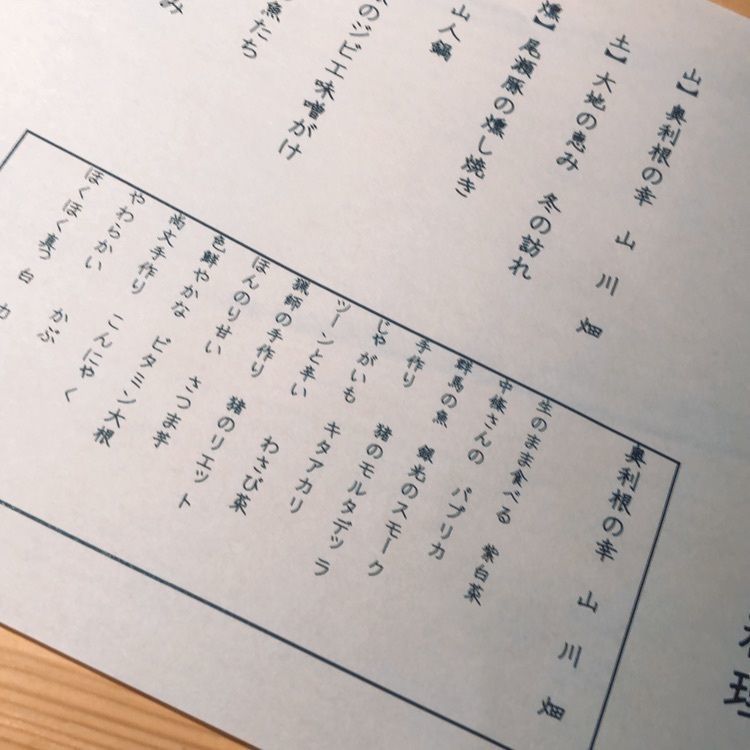 理
山】奥利根の幸 山 川 畑
土】大地の恵み 冬の訪れ
燻】尾瀬豚の燻し焼き
山人鍋
のジビエ味噌がけ
魚たち
み
奥利根の幸 山 川 畑
生のまま食べる 紫白菜
中條さんの パプリカ
群馬の魚 銀光のスモーク
手作り 猪のモルタデッラ
じゃがいも キタアカリ
ツーンと辛い わさび菜
猟師の手作り 猪のリエット
ほんのり甘い さつま芋
色鮮やかな ビタミン大根
尚文手作り こんにゃく
やわらかい かぶ
ほくほく真っ白 カ